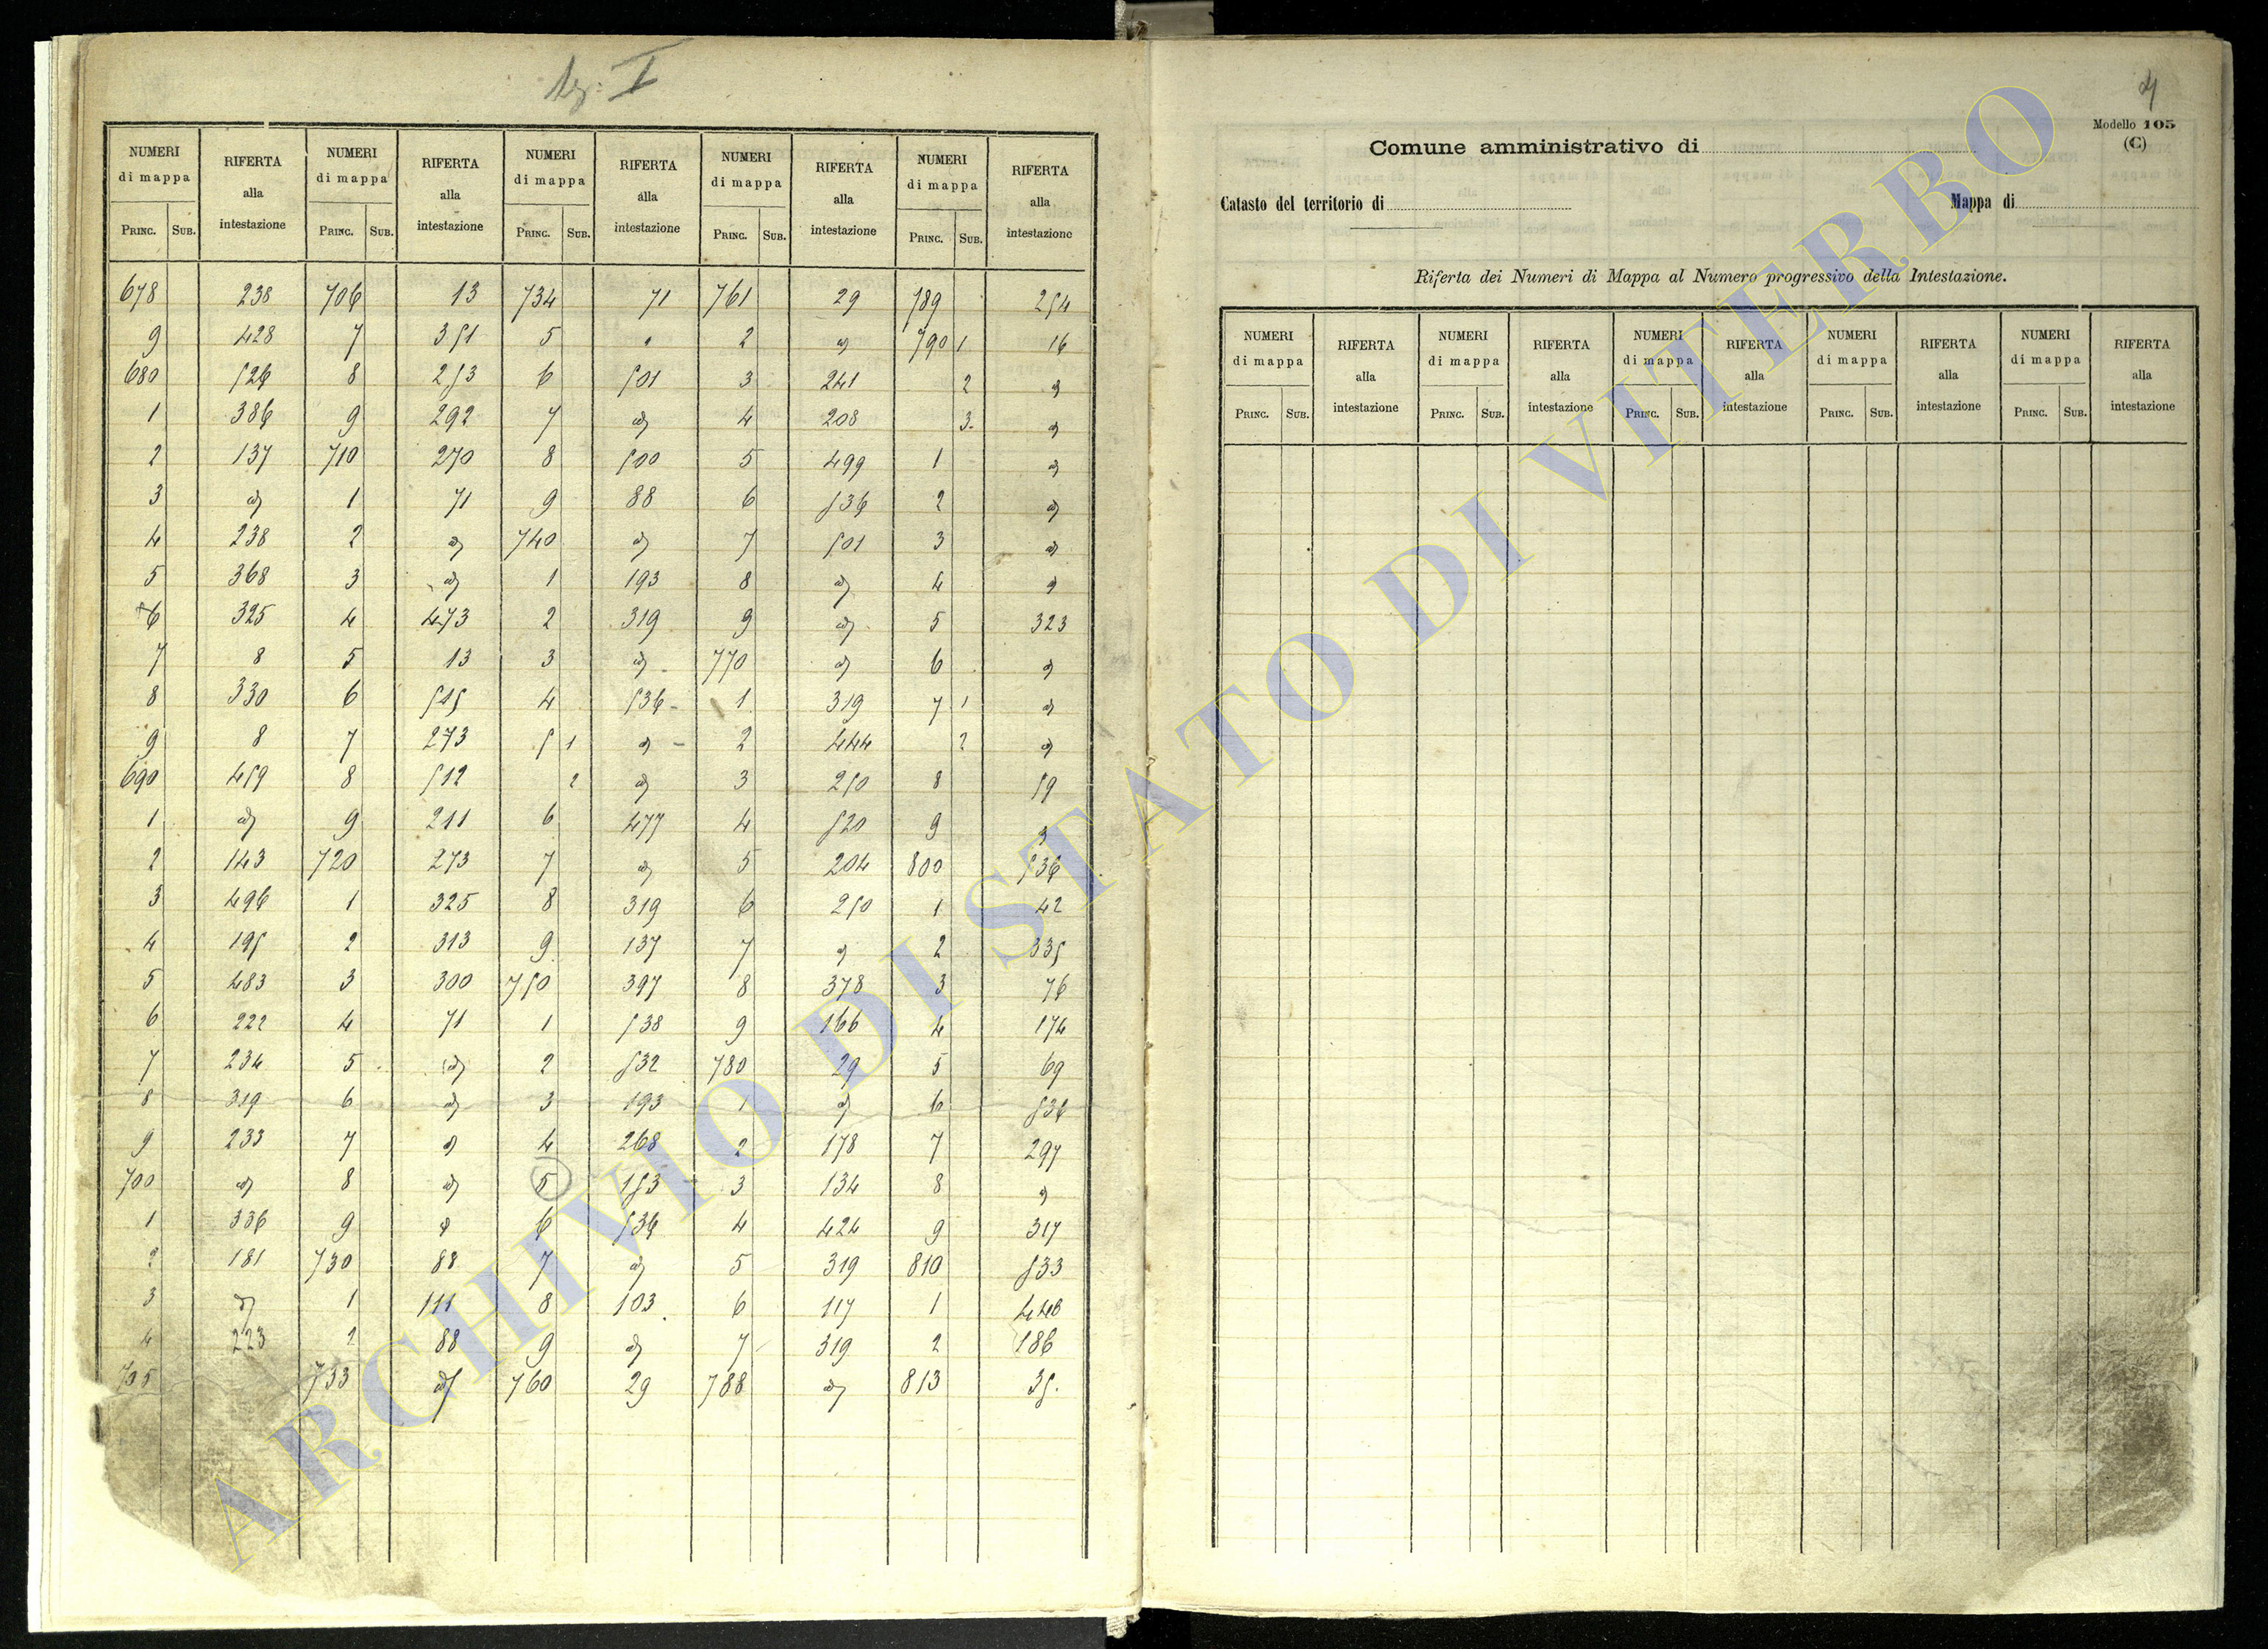 I
NUMERI di mappa RIFERTA alla intestazione NUMERI di mappa RIFERTA alla intestazione NUMERI di mappa RIFERTA alla intestazione NUMERI di mappa RIFERTA alla intestazione NUMERI di mappa RIFERTA alla intestazione
PRINC. SUB. PRINC. SUB. PRINC. SUB. PRINC. SUB. PRINC. SUB.
678 238 706 13 734 71 761 29 789 254
9 428 7 351 5 2 790 1 16
680 526 8 253 6 501 3 241 2
1 386 9 292 7 4 208 3
2 137 710 270 8 500 5 499 1
3 1 71 9 88 6 536 2
4 238 2 740 7 501 3
5 368 3 1 193 8 4
6 325 4 473 2 319 9 5 323
7 8 5 13 3 770 6
8 330 6 515 4 536 1 319 7 1
9 8 7 273 5 1 2 444 2
690 459 8 512 2 3 250 8 59
1 9 211 6 477 4 520 9
2 143 720 273 7 5 204 800 536
3 496 1 325 8 319 6 250 1 42
4 195 2 313 9 137 7 2 335
5 483 3 300 750 397 8 378 3 76
6 222 4 71 1 538 9 166 4 174
7 234 5 2 532 780 29 5 69
8 319 6 3 193 1 6 536
9 233 7 4 268 2 178 7 297
700 8 5 153 3 134 8
1 336 9 6 536 4 424 9 317
2 181 730 88 7 5 319 810 533
3 1 111 8 103 6 117 1 446
4 223 2 88 9 7 319 2 186
705 733 760 29 788 813 35.
4
Modello 105
(C)
Comune amministrativo di
Catasto del territorio di Mappa di
Riferta dei Numeri di Mappa al Numero progressivo della Intestazione.
NUMERI di mappa RIFERTA alla intestazione NUMERI di mappa RIFERTA alla intestazione NUMERI di mappa RIFERTA alla intestazione NUMERI di mappa RIFERTA alla intestazione NUMERI di mappa RIFERTA alla intestazione
PRINC. SUB. PRINC. SUB. PRINC. SUB. PRINC. SUB. PRINC. SUB.
ARCHIVIO DI STATO DI VITERBO